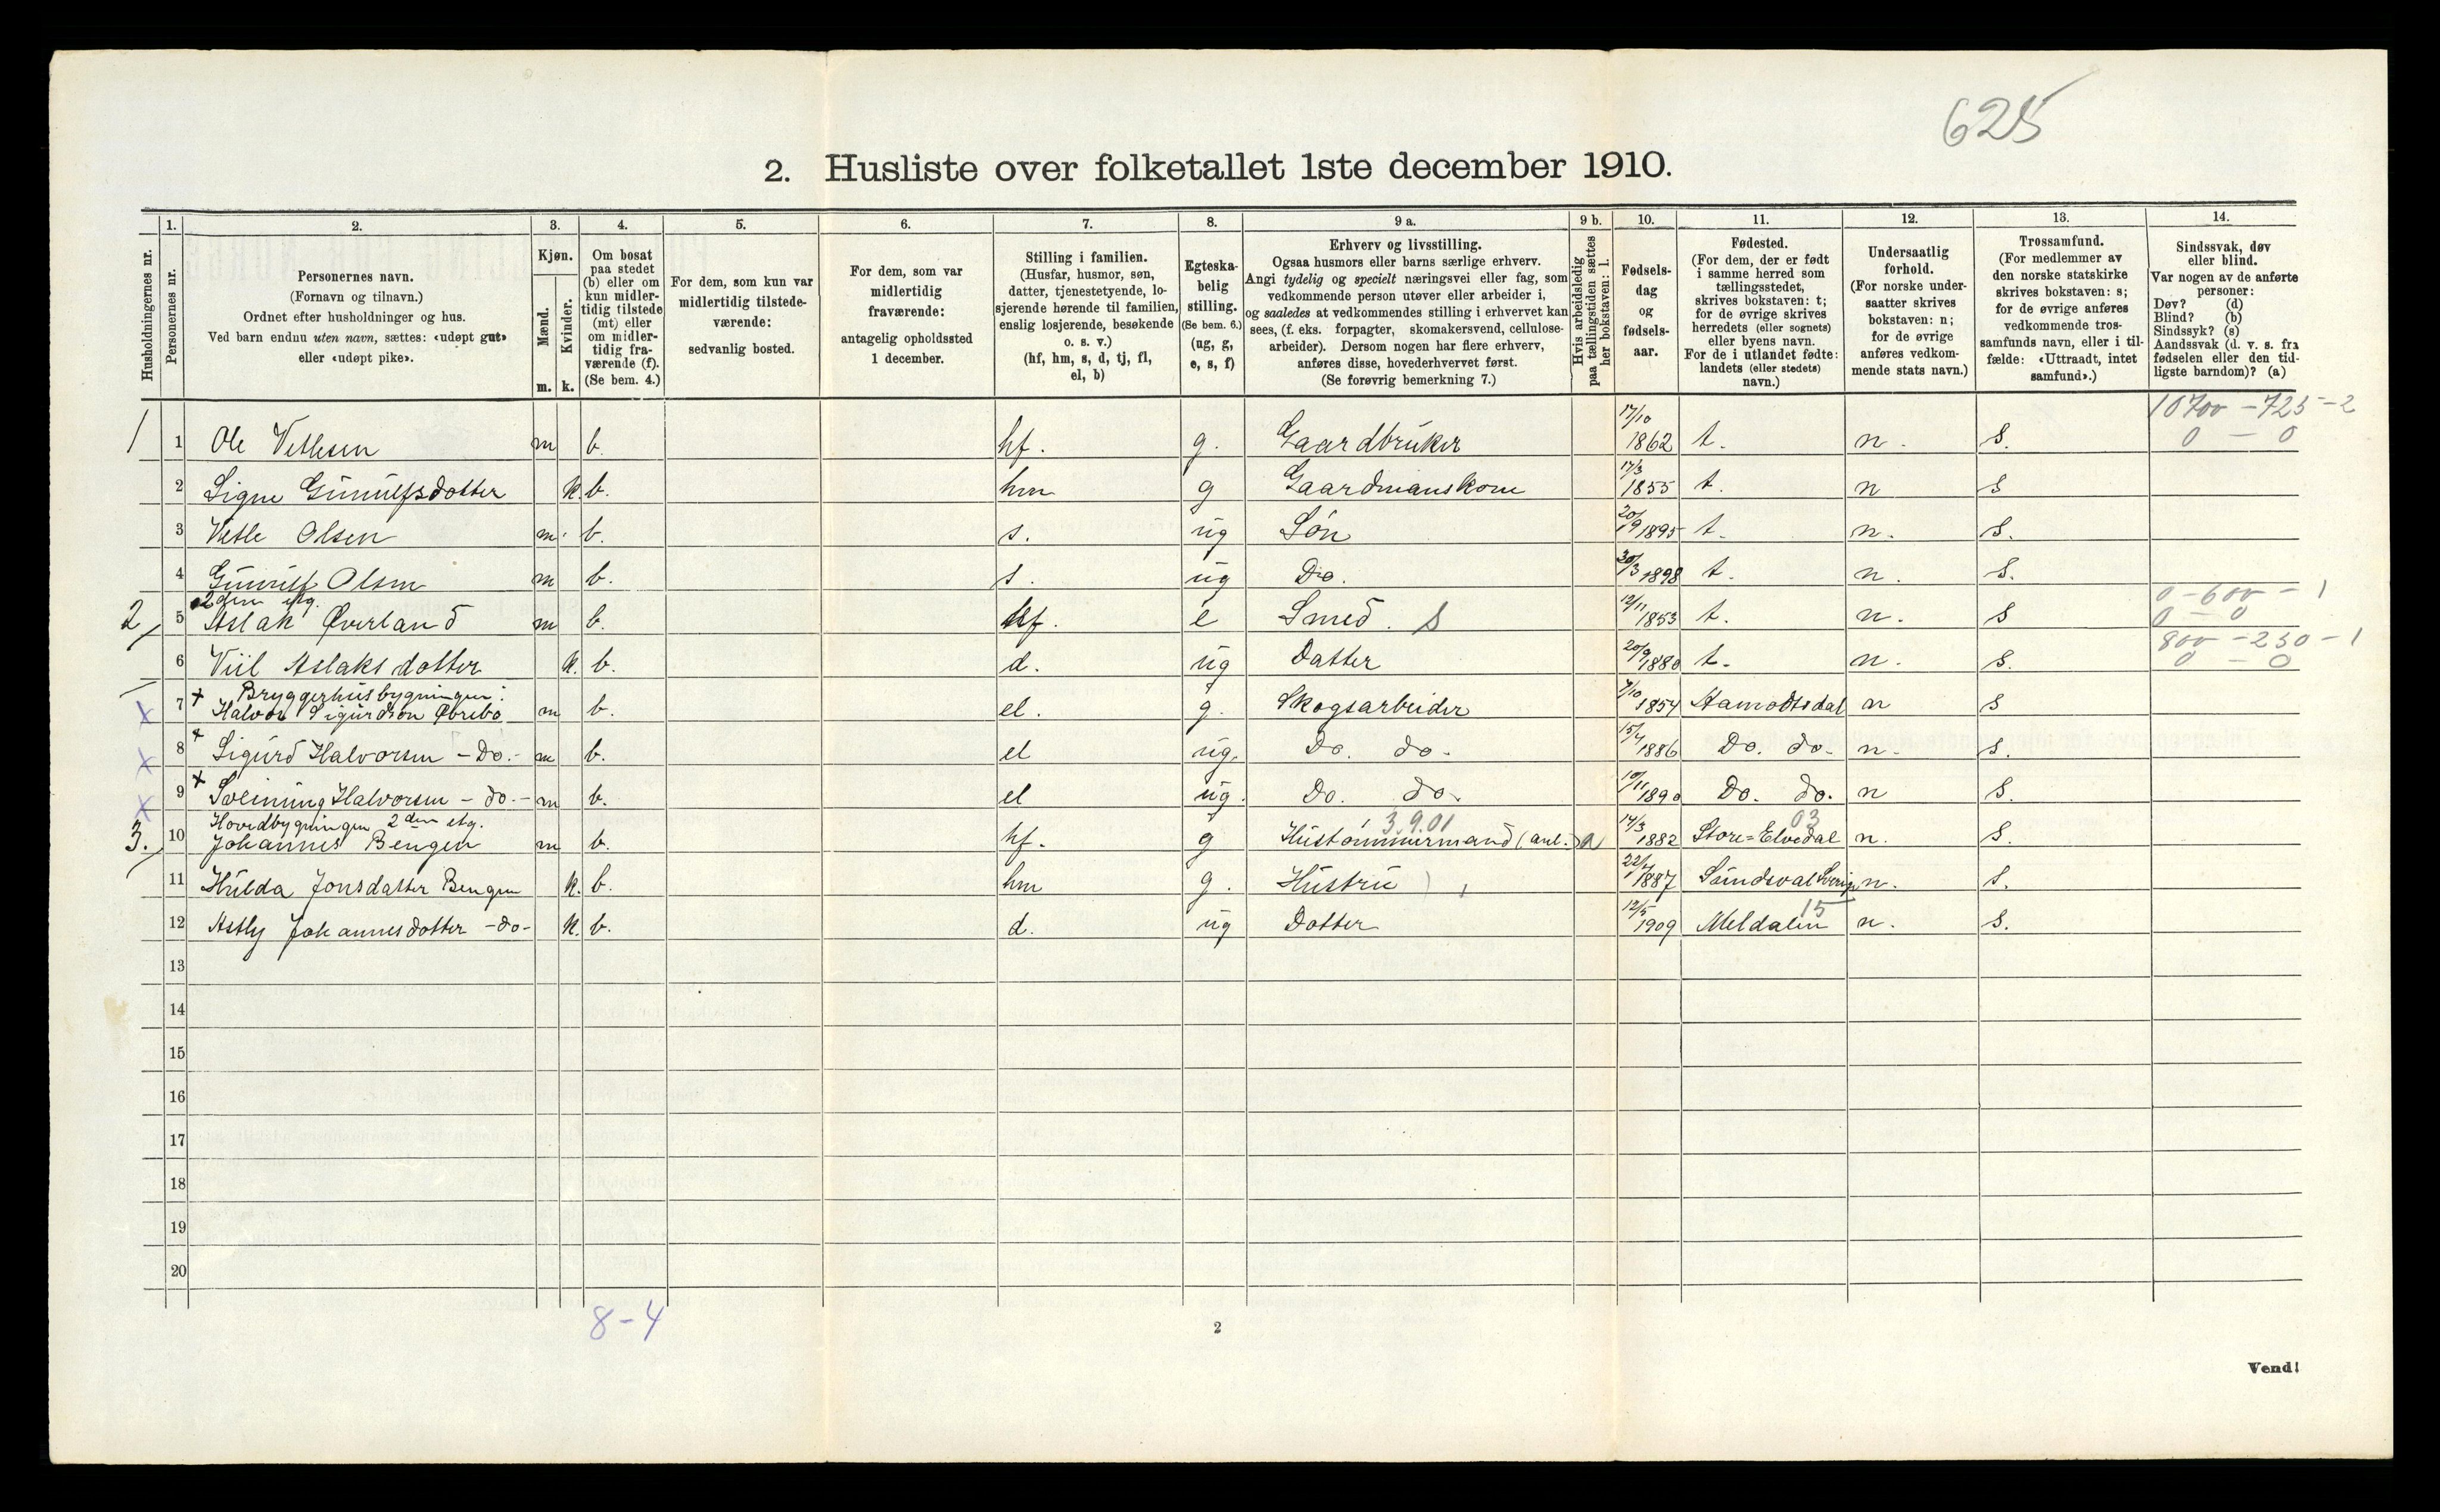 625
2. Husliste over folketallet 1ste december 1910.
Husholdningernes nr.
1. Personernes nr.
2. Personernes navn. (Fornavn og tilnavn.) Ordnet efter husholdninger og hus. Ved barn endnu uten navn, sættes: «udøpt gut» eller «udøpt pike».
3. Kjøn. Mænd. m. Kvinder. k.
4. Om bosat paa stedet (b) eller om kun midlertidig tilstede (mt) eller om midlertidig fraværende (f). (Se bem. 4.)
5. For dem, som kun var midlertidig tilstedeværende: sedvanlig bosted.
6. For dem, som var midlertidig fraværende: antagelig opholdssted 1 december.
7. Stilling i familien. (Husfar, husmor, søn, datter, tjenestetyende, losjerende hørende til familien, enslig losjerende, besøkende o. s. v.) (hf, hm, s, d, tj, fl, el, b)
8. Egteskabelig stilling. (Se bem. 6.) (ug, g, e, s, f)
9 a. Erhverv og livsstilling. Ogsaa husmors eller barns særlige erhverv. Angi tydelig og specielt næringsvei eller fag, som vedkommende person utøver eller arbeider i, og saaledes at vedkommendes stilling i erhvervet kan sees, (f. eks. forpagter, skomakersvend, cellulosearbeider). Dersom nogen har flere erhverv, anføres disse, hovederhvervet først. (Se forøvrig bemerkning 7.)
9 b. Hvis arbeidsledig paa tællingstiden sættes her bokstaven: l.
10. Fødselsdag og fødselsaar.
11. Fødested. (For dem, der er født i samme herred som tællingsstedet, skrives bokstaven: t; for de øvrige skrives herredets (eller sognets) eller byens navn. For de i utlandet fødte: landets (eller stedets) navn.)
12. Undersaatlig forhold. (For norske undersaatter skrives bokstaven: n; for de øvrige anføres vedkommende stats navn.)
13. Trossamfund. (For medlemmer av den norske statskirke skrives bokstaven: s; for de øvrige anføres vedkommende trossamfunds navn, eller i tilfælde: «Uttraadt, intet samfund».)
14. Sindssvak, døv eller blind. Var nogen av de anførte personer: Døv? (d) Blind? (b) Sindssyk? (s) Aandssvak (d. v. s. fra fødselen eller den tidligste barndom)? (a)
10700 - 725 - 2
1 1 Ole Vetlesen m b. hf. g. Gaardbruker 17/10 1862 t. n. S. 0 - 0
2 Signe Gunulfsdotter k. b. hm g Gaardmanskone 17/3 1855 t. n s
3 Vetle Olsen m. b. s. ug Søn 20/9 1895 t. n. S.
4 Gunulf Olsen m b. s. ug Do. 30/3 1898 t. n. S.
2den etg. 0 - 600 - 1
2 5 Aslak Øverland m b. hf. e Smed. S 12/11 1853 t. n. S 0 - 0
800 - 230 - 1
6 Viil Aslaksdotter k. b. d. ug Datter 20/9 1880 t. n. s. 0 - 0
Bryggerhusbygningen:
x 7 + Halvor Sigurdson Øvrebø m b. el. g. Skogsarbeider 7/10 1854 n s
x 8 + Sigurd Halvorsen - Do. - m b. el ug. Do. do. 15/4 1886 Do. do. n. s.
x 9 + Sveinung Halvorsen - do. - m b. el ug. Do. do. 10/11 1890 Do. do. n S.
Hovedbygningen 2den etg. 3.9.01 03
3. 10 Johannes Bengen m b. hf. g Hustømmermand (anl.) a 14/3 1882 Store=Elvedal n. S.
11 Hulda Jonsdatter Bengen k. b. hm g. Hustru 22/4 1887 Sundsval Sverige n. S.
15
12 Astly Johannesdotter - do - k. b. d. ug Dotter 12/5 1909 Meldalen n. S.
13
14
15
16
17
18
19
20
8-4
2
Vend!